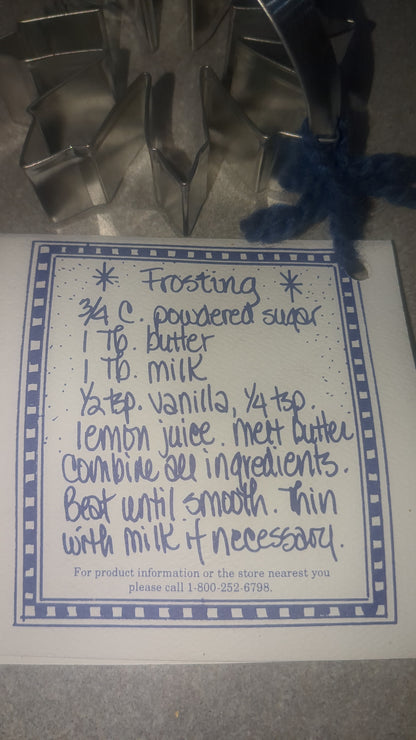 * Frosting *
3/4 C. powdered sugar
1 Tb. butter
1 Tb. milk
1/2 tsp. vanilla, 1/4 tsp
lemon juice. Melt butter
Combine all ingredients.
Beat until smooth. Thin
with milk if necessary.
For product information or the store nearest you
please call 1-800-252-6798.